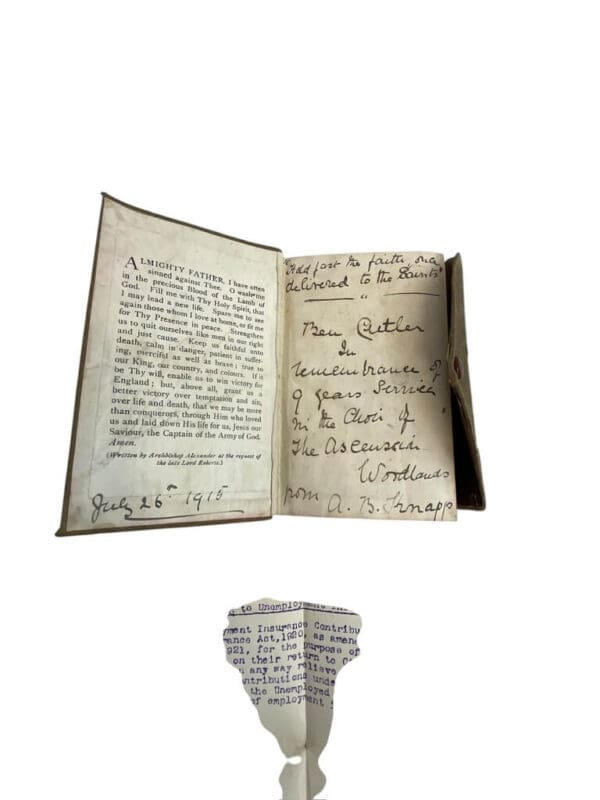 ALMIGHTY FATHER, I have often
sinned against Thee. O wash me
in the precious Blood of the Lamb of
God. Fill me with Thy Holy Spirit, that
I may lead a new life. Spare me to see
again those whom I love at home, or fit me
for Thy Presence in peace. Strengthen
us to quit ourselves like men in our right
and just cause. Keep us faithful unto
death, calm in danger, patient in suffer-
ing, merciful as well as brave; true to
our King, our country, and colours. If it
be Thy will, enable us to win victory for
England; but, above all, grant us a
better victory over temptation and sin,
over life and death, that we may be more
than conquerors, through Him who loved
us and laid down His life for us, Jesus our
Saviour, the Captain of the Army of God.
Amen.
(Written by Archbishop Alexander at the request of
the late Lord Roberts.)
July 26th 1915
fast the faith, once
delivered to the Saints"
Ben Cutler
In
remembrance of
9 years Service
in the Choir of
The Ascension
Woodlands
from A. B. Knapp
g to Unemployment
yment Insurance Contribu
rance Act, 1920, as amen
921, for the purpose of
on their return to C
any way relieve
ntributions unde
the Unemployed
of employment